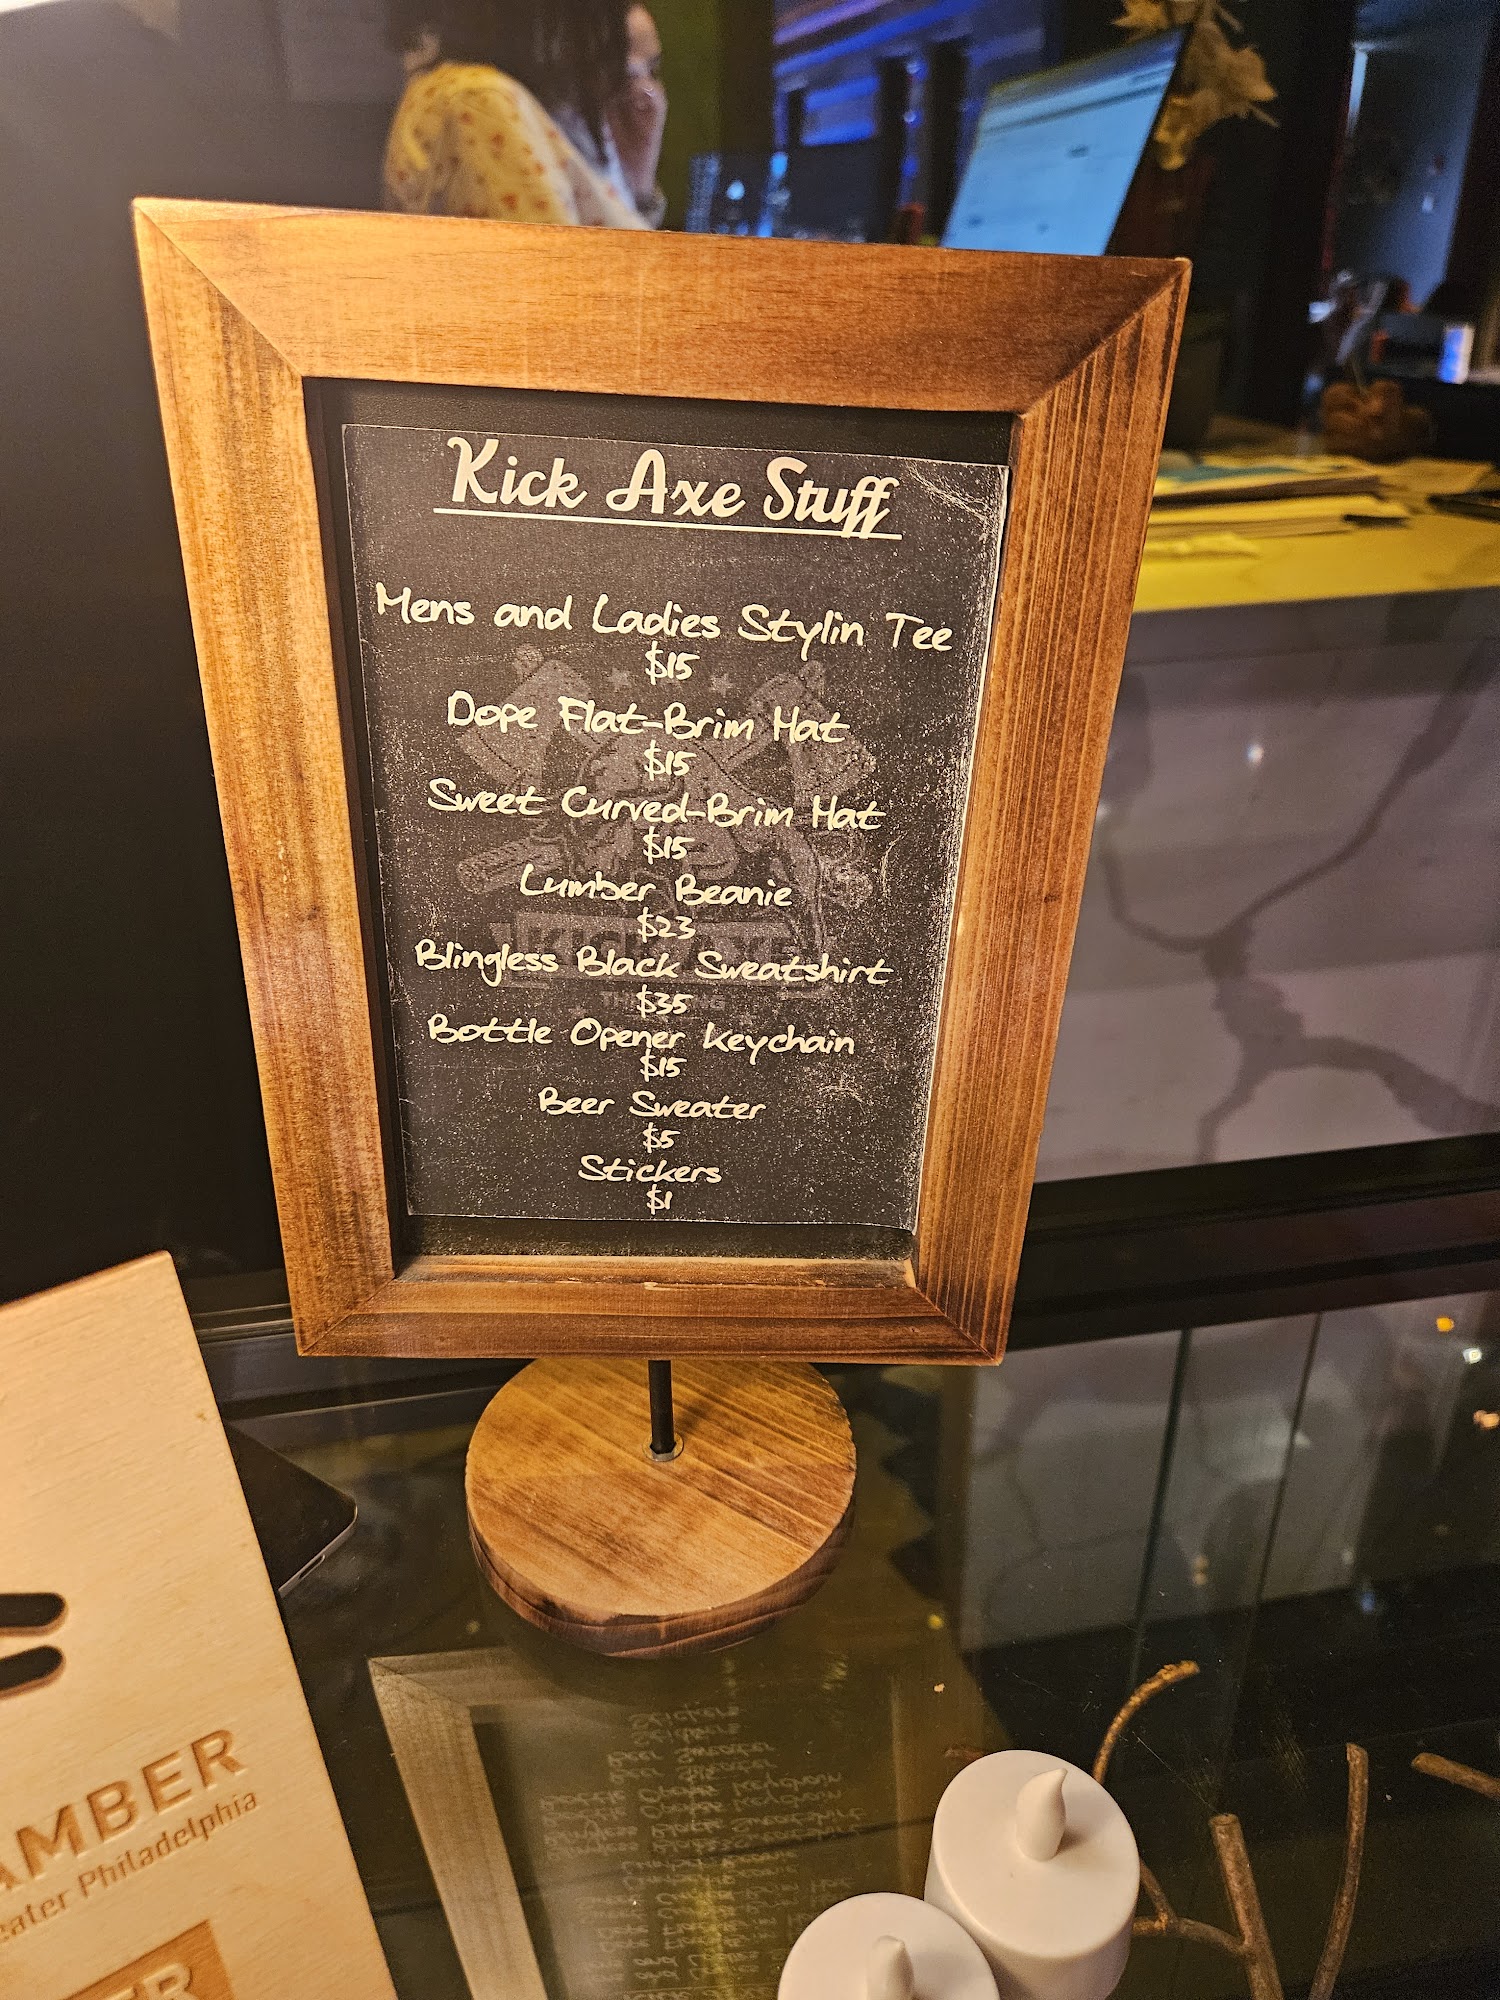 Kick Axe Stuff
Mens and Ladies Stylin Tee
$15
Dope Flat-Brim Hat
$15
Sweet Curved-Brim Hat
$15
Lumber Beanie
$23
Blingless Black Sweatshirt
$35
Bottle Opener Keychain
$15
Beer Sweater
$5
Stickers
$1
KICK AXE
AMBER
eater Philadelphia
ER